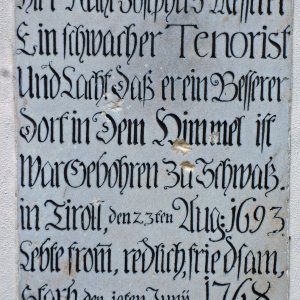 Hier Ruht Josephus Messerer
Ein schwacher Tenorist
Und Lacht Daß er ein Besserer
Dort in Dem Himmel ist
War Gebohren Zu Schwatz.
in Tiroll, den 23ten Aug: 1693
Lebte from, redlich, friedsam,
Starb den Junÿ 1768